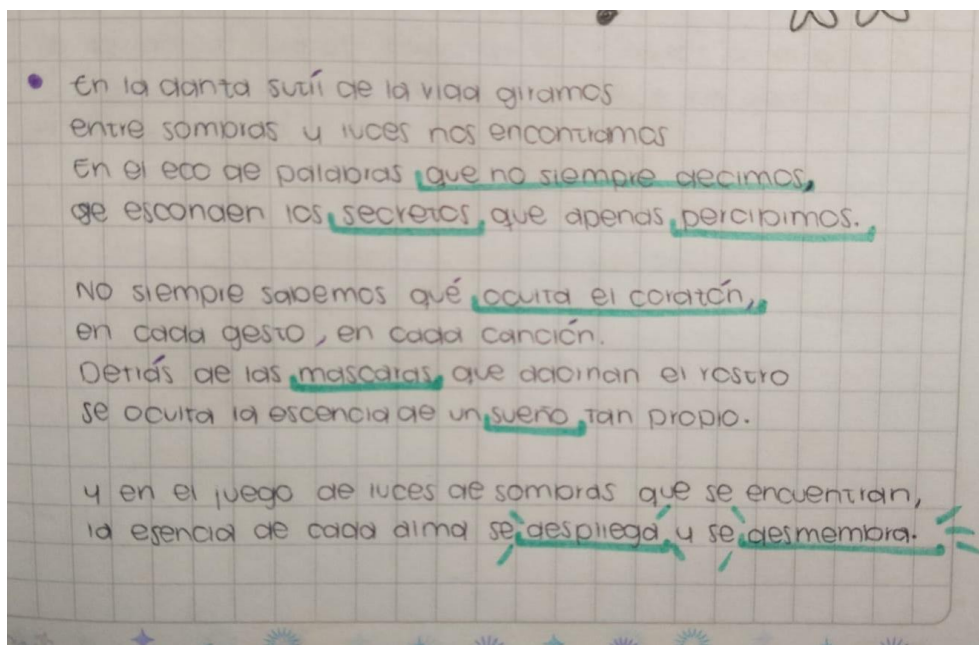 En la danza sutíl de la vida giramos
entre sombras y luces nos encontramos
En el eco de palabras que no siempre decimos,
se esconden los secretos que apenas percibimos.
No siempre sabemos qué oculta el corazón,
en cada gesto, en cada canción.
Detrás de las mascaras que adornan el rostro
se oculta la escencia de un sueño tan propio.
y en el juego de luces de sombras que se encuentran,
la esencia de cada alma se despliega y se desmembra.